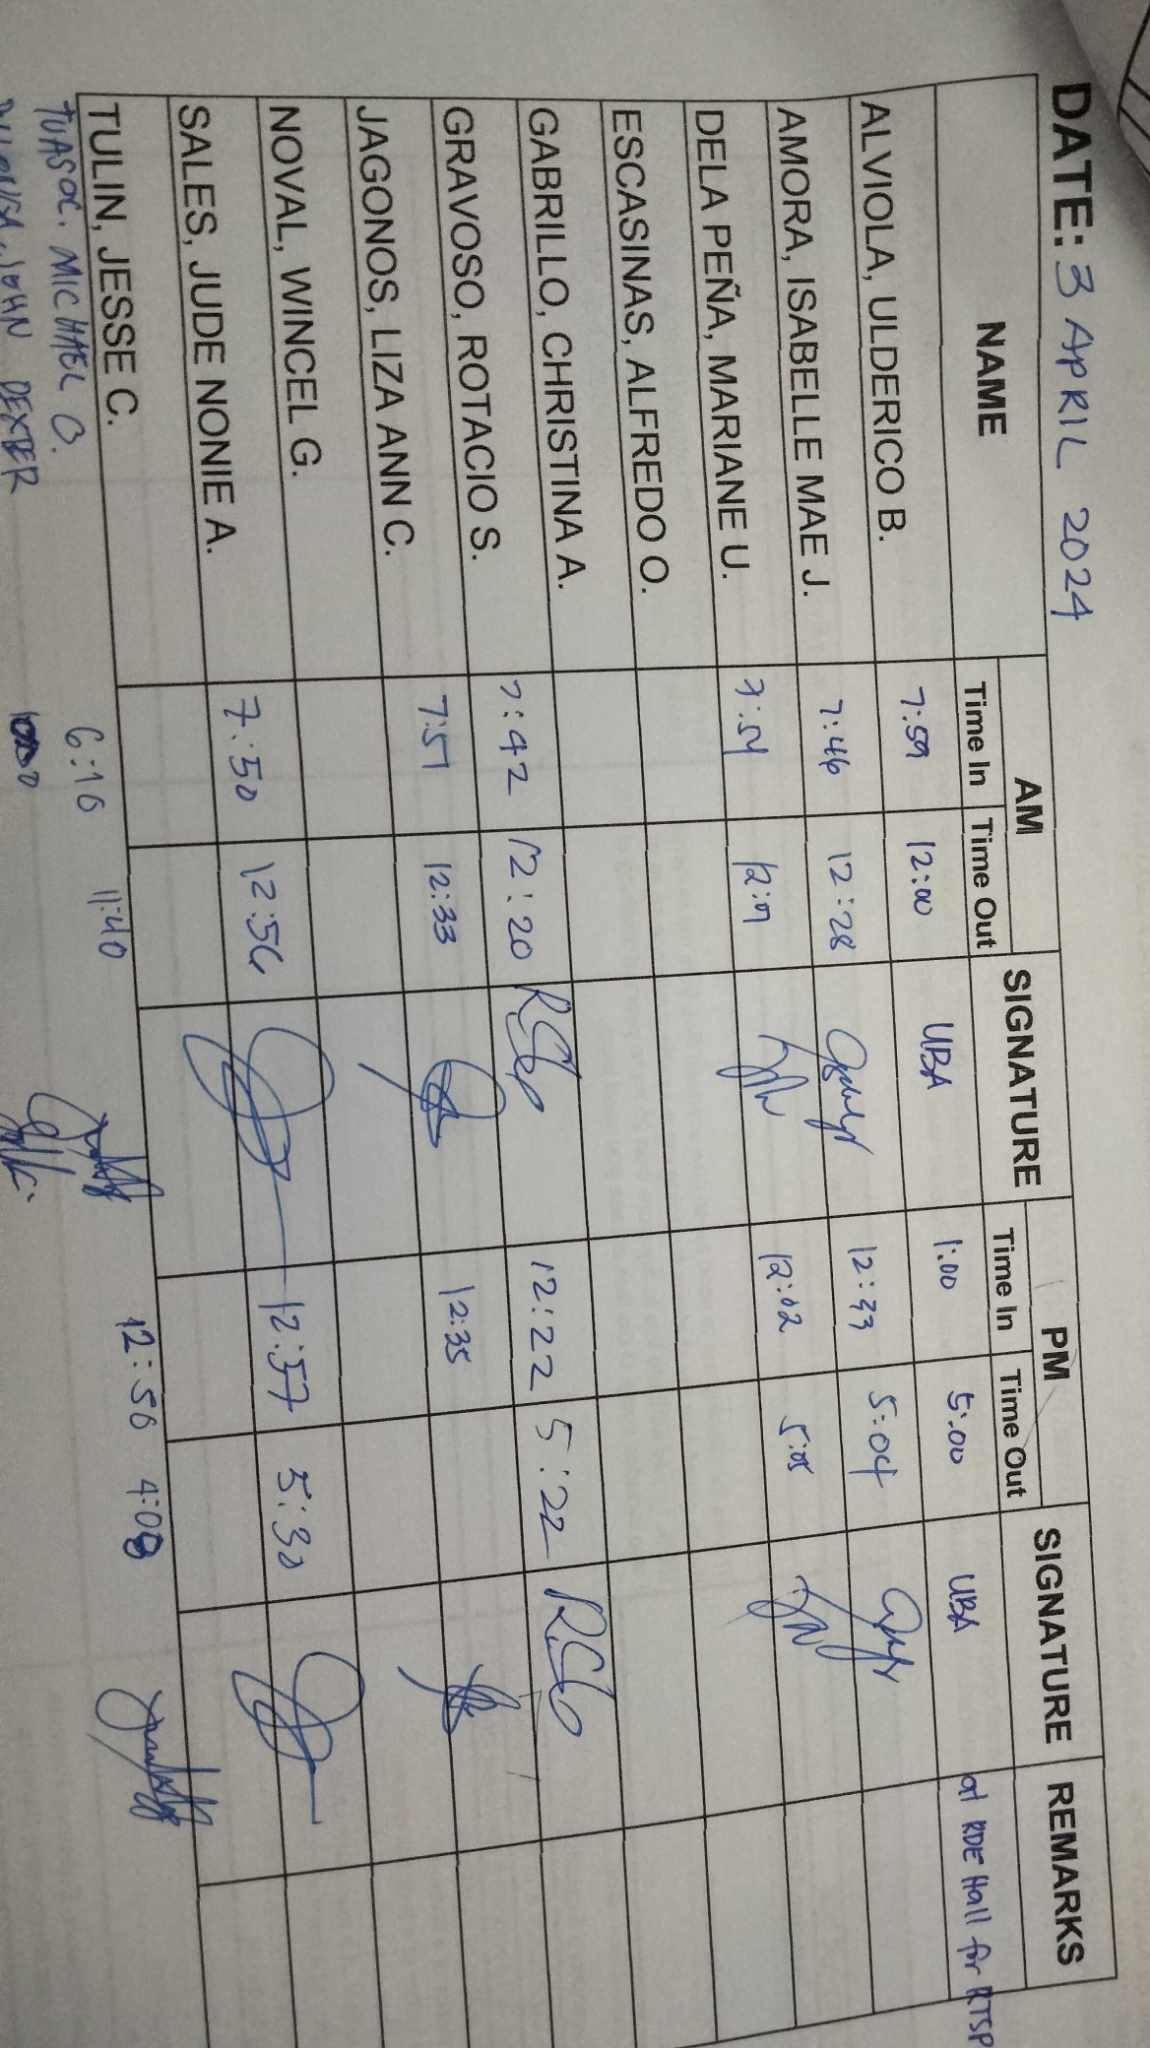 DATE: 3 APRIL 2024
NAME AM SIGNATURE PM SIGNATURE REMARKS
Time In Time Out Time In Time Out
ALVIOLA, ULDERICO B. 7:59 12:00 UBA 1:00 5:00 UBA at RDE Hall for RTSP
AMORA, ISABELLE MAE J. 7:46 12:28 12:33 5:04
DELA PEÑA, MARIANE U. 7:54 12:01 12:02 5:05
ESCASINAS, ALFREDO O.
GABRILLO, CHRISTINA A.
GRAVOSO, ROTACIO S. 7:42 12:20 12:22 5:22
JAGONOS, LIZA ANN C. 7:57 12:33 12:35
NOVAL, WINCEL G.
SALES, JUDE NONIE A. 7:50 12:56 12:57 5:30
TULIN, JESSE C.
TUASOC. MICHAEL O. 6:16 11:40 12:50
JOHN DEXTER